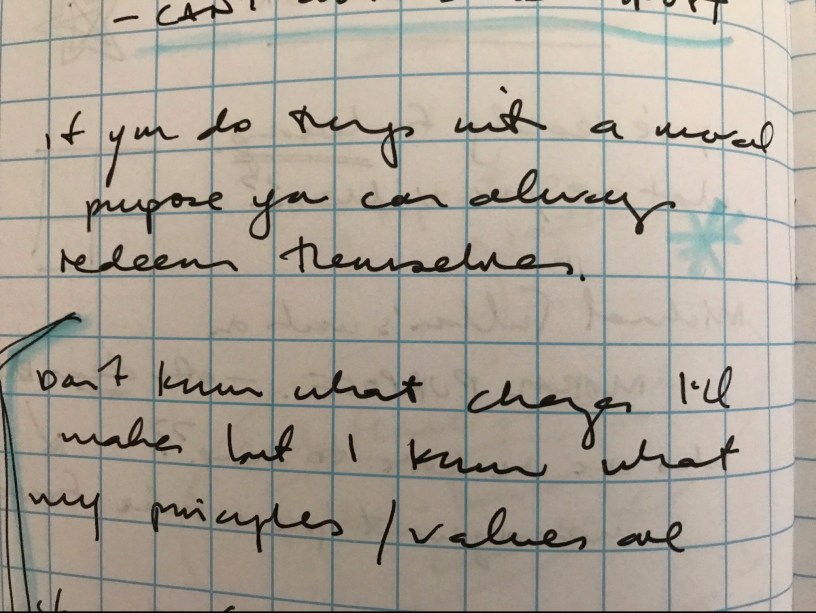 - CAN'T
if you do things with a moral
purpose you can always
redeem themselves.
Don't know what changes I'll
makes but I know what
my principles / values are